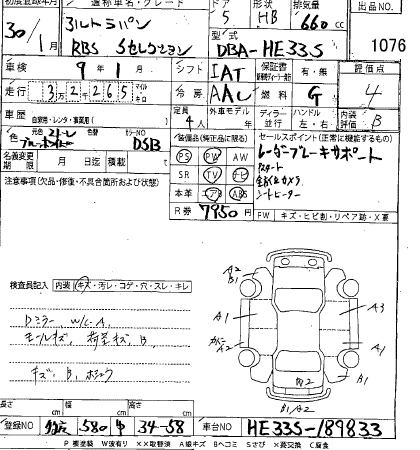 初度登録年月 通称車名・グレード ドア 形状 排気量 出品NO.
30/1月 アルトラパン 5 HB 660cc
RBS Sセレクション 型式 DBA-HE33S 1076
車検 9年1月 シフト IAT 保証書 有・無 評価点
走行 32265 マイル キロ AAC 燃料 G 4
車歴 自家用・レンタ・事業用( ) 定員 4人 外車モデル年 ディーラー 並行 ハンドル 左・右 内装評価 B
色 元色 2トーン 色替 カラーNO DSB
名義変更期限 月 日 積載 t
装備品(純正品に限る) セールスポイント(正常に機能するもの)
PS PW AW レーダーブレーキサポート
SR TV ナビ Pスタート
本革 エアB ABS 全方位カメラ
シートヒーター
R券 7950 FW キズ・ヒビ割・リペア跡・X要
注意事項(欠品・修復・不具合箇所および状態)
検査員記入 内装 キズ・汚レ・コゲ・穴・スレ・キレ
Dミラー、W/C.A、
モールキズ、荷室キズ、B、
キズ、B、ホシュウ
A2
B1
A1
A3
A2
A1
B2
B1
B1/A2
長さ cm 幅 cm 高さ cm
登録NO 580 34-58 車台NO HE33S-189833
P 要塗装 W波有り ××取替済 A線キズ Bヘコミ Sさび ×要交換 C腐食